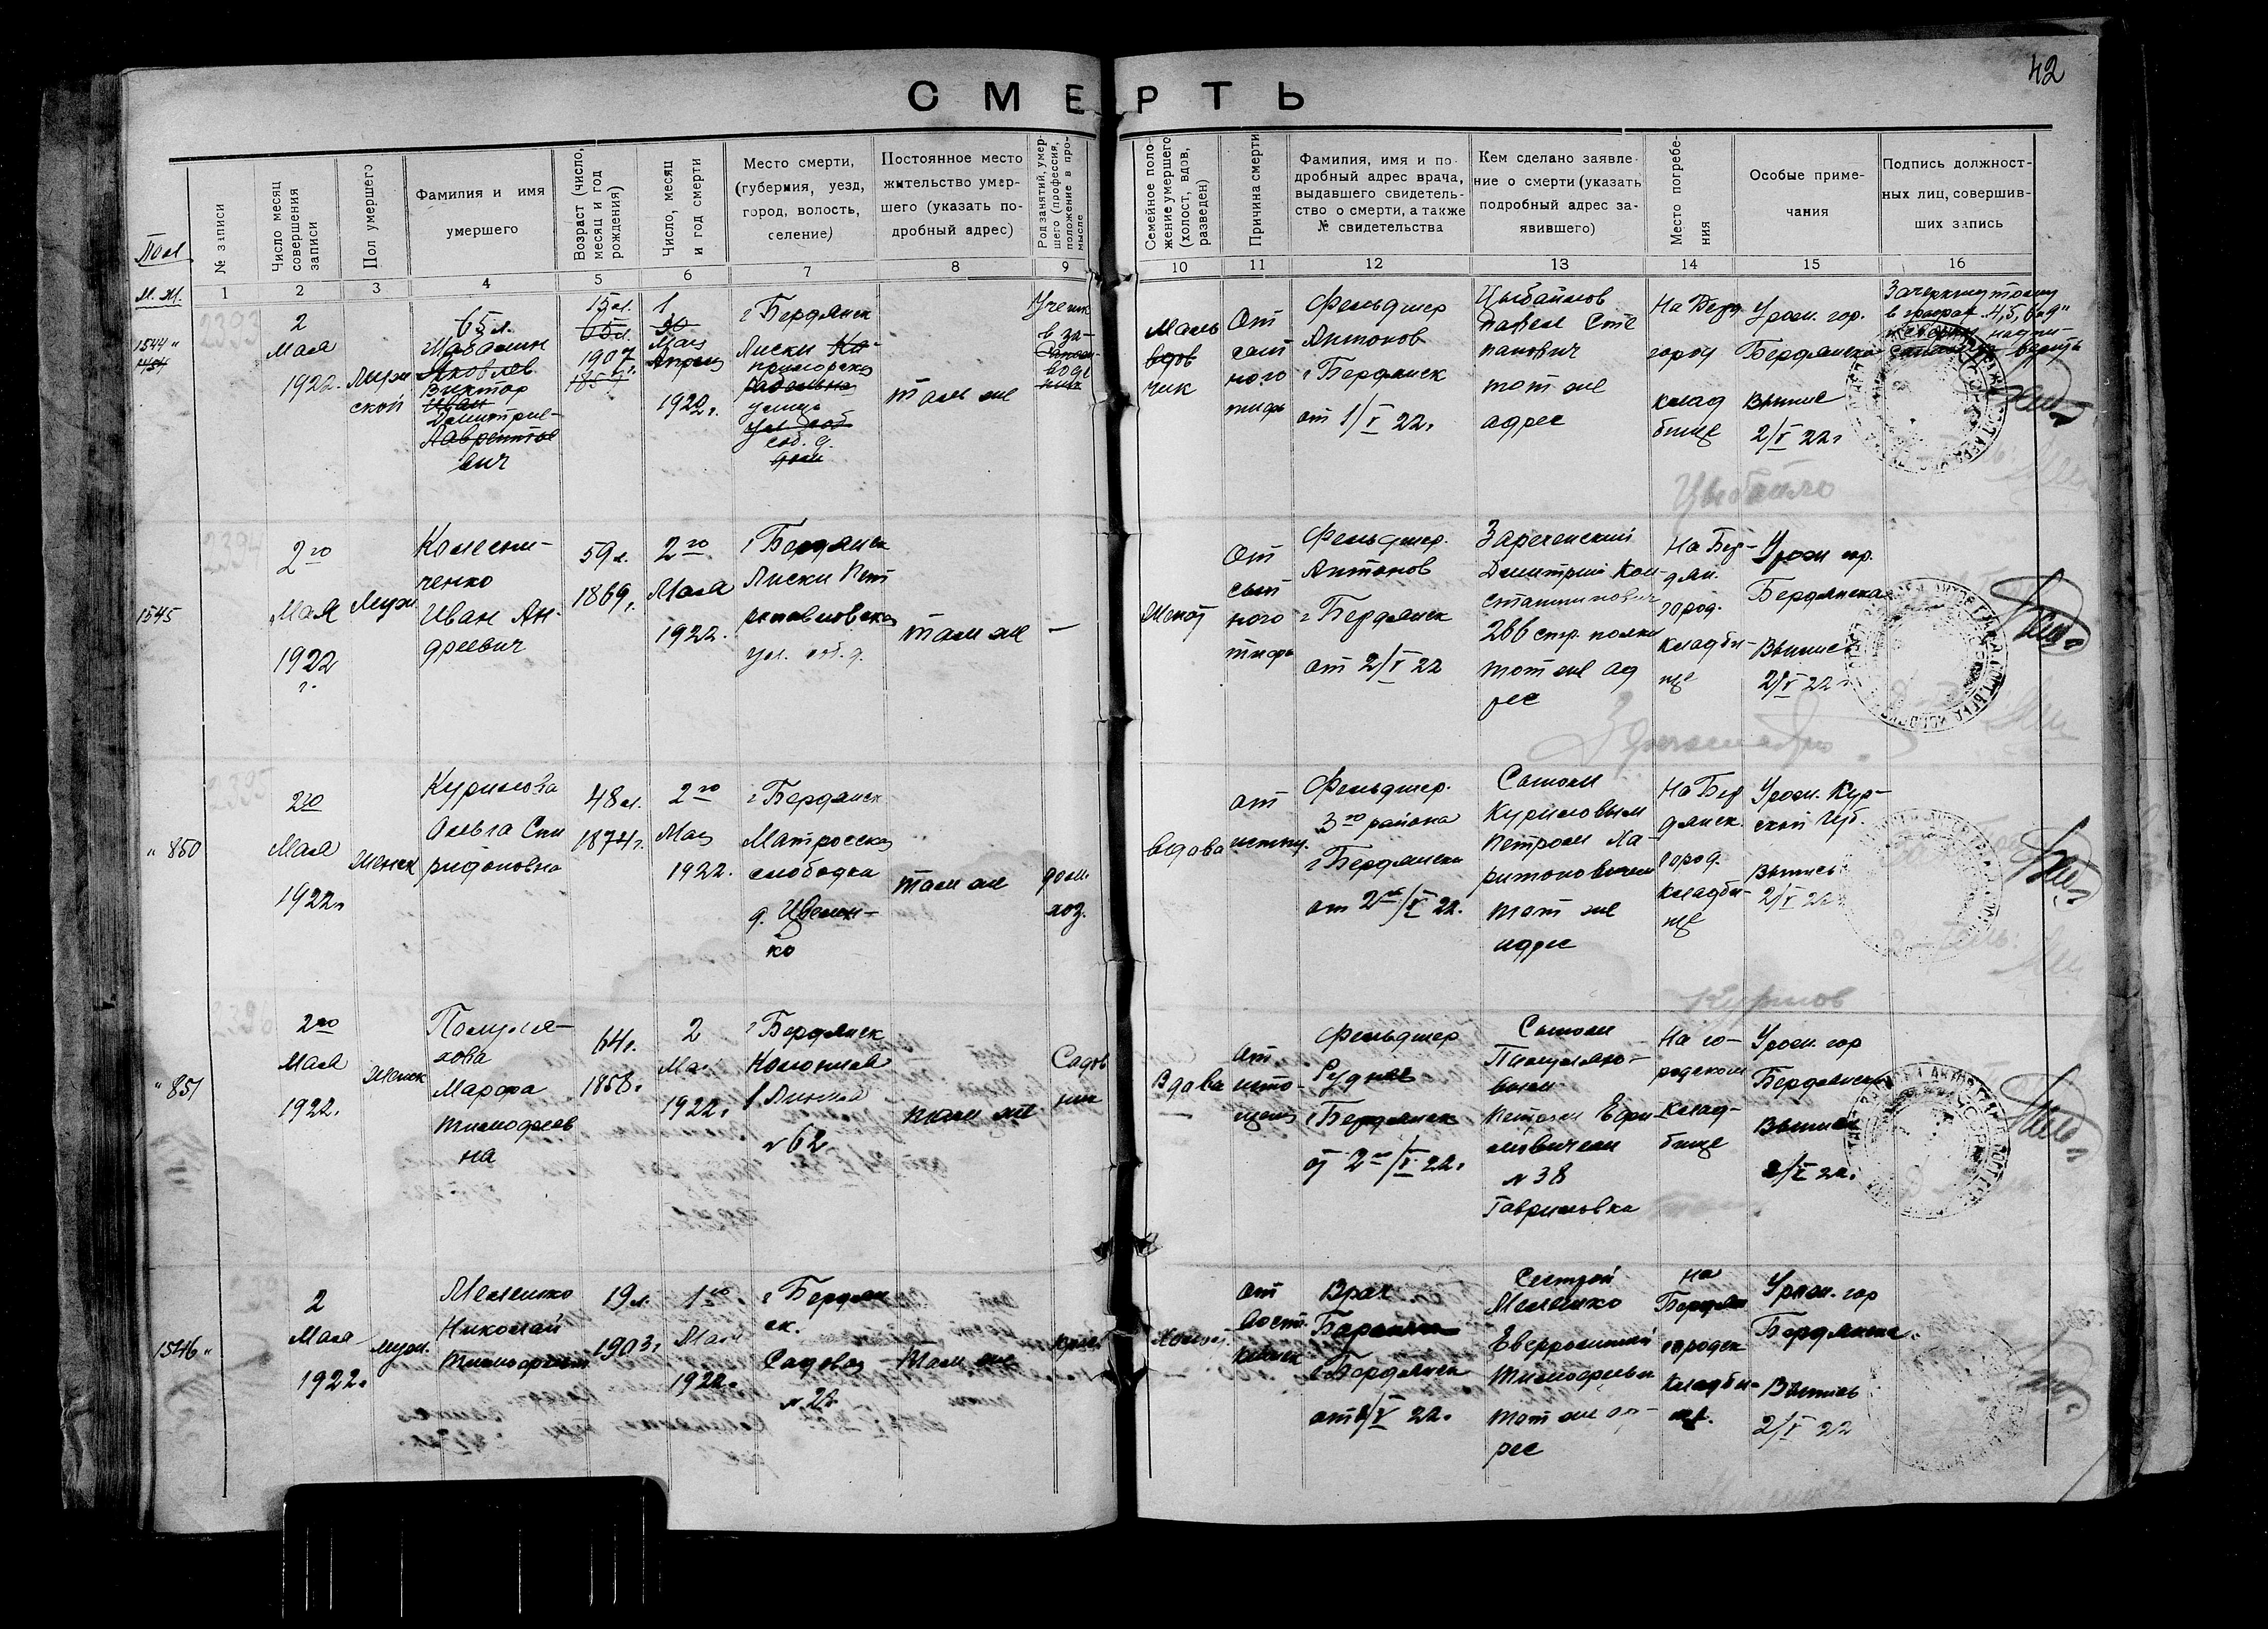 42
СМЕРТЬ
Пол
М. Ж.
№ записи
Число месяц
совершения
записи
Пол умершего
Фамилия и имя
умершего
Возраст (число,
месяц и год
рождения)
Число, месяц
и год смерти
Место смерти,
(губерния, уезд,
город, волость,
селение)
Постоянное место
жительство умер-
шего (указать по-
дробный адрес)
Род занятий, умер-
шего (профессия,
положение в про-
мысле
Семейное поло-
жение умершего
(холост, вдов,
разведен)
Причина смерти
Фамилия, имя и по-
дробный адрес врача,
выдавшего свидетель-
ство о смерти, а также
№ свидетельства
Кем сделано заявле-
ние о смерти (указать
подробный адрес за-
явившего)
Место погребе-
ния
Особые приме-
чания
Подпись должност-
ных лиц, совершив-
ших запись
1 2 3 4 5 6 7 8 9 10 11 12 13 14 15 16
2393
1544 "
2
Мая
1922.
Муж
ской
65 л.
Яковлев
Виктор
Иван
Дмитрие-
Лаврентье
вич
15 л.
65 л.
1907
1
30
Мая
Апрель
1922 г.
г Бердянск
Лиски
приморская
соб. д.
там же
Ученик
Маль
вдов
чик
От
сып
ного
тифа
Фельдшер
Антонов
г Бердянск
от 1/V 22 г
Павел Сте
панович
тот же
адрес
На Берд
город
клад
бище
Урож. гор.
Бердянска
Выпис
2/V 22 г
Зачеркнутому
в графах 4, 5, 6 и 9
верить
Цыбайло
2394
1545
2го
Мая
1922
г.
Муж
Колесни-
ченко
Иван Ан-
дреевич
59 л.
1869 г.
2го
Мая
1922.
г Бердянск
Лиски Пет
ропавловская
ул. соб. д.
там же
—
Женат
От
сып
ного
тифа
Фельдшер.
Антонов
г Бердянск
от 2/V 22
Зареченский
Дмитрий Кон-
стантинович
266 стр. полка
тот же ад
рес
На Бер-
дян.
город.
кладби-
ще
Урож гор.
Бердянска
Выпись
2/V 22 г
2395
" 850
2го
Мая
1922 г
Женск
Курилова
Ольга Спи
ридоновна
48 л.
1874 г.
2го
Мая
1922.
г Бердянск
Матросская
слободка
д. Ивсен-
ко
там же
дом.
хоз.
вдова
от
истощ.
Фельдшер.
3го района
г Бердянска
от 2го/V 22.
Сыном
Куриловым
Петром Ха-
ритоновичем
тот же
адрес
На Бер
дянск.
город.
кладби-
ще
Урож. Кур-
ской губ.
Выпись
2/V 22 г
Курилов
2396
" 851
2го
Мая
1922 г.
Женск
Марфа
Тимофеев
на
64 г.
1858 г.
2
Мая
1922 г.
г Бердянск
Колония
1 Линия
№ 62
там же
Садов
ник
Вдова
от
исто-
щения
Фельдшер
Руднев
г Бердянск
от 2го/V 22 г.
Сыном
№ 38
Гавриловка
На го-
родском
клад-
бище
Урож. гор
Бердянска
Выпись
2/V 22 г.
1546 "
2
Мая
1922 г
муж.
Мелешко
Николай
Тимофеевич
19 л.
1903 г
1го
Мая
1922 г
г Бердян
ск.
Садовая
№ 22
Там же
Холост.
от
Врач
г Бердянск
от 2/V 22 г.
Сестрой
Мелешко
Тимофеевн
тот же ад-
рес
на
Бердян
городск
кладби-
ще.
Урож. гор
Бердянска.
Выпись
2/V 22